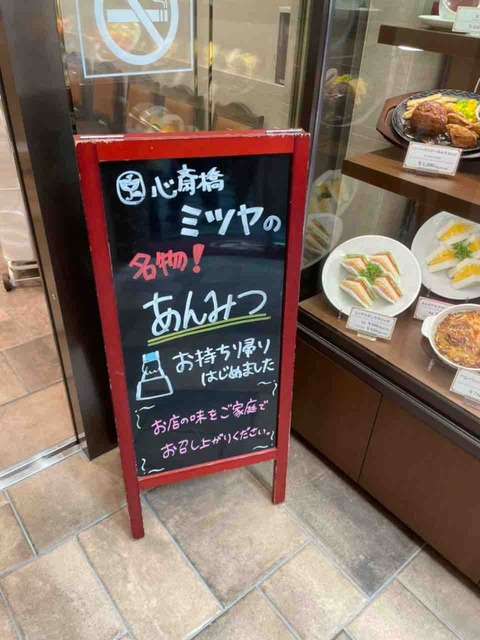 心斎橋
ミツヤの
名物!
あんみつ
お持ち帰り
はじめました
お店の味をご家庭で
お召し上がりください。